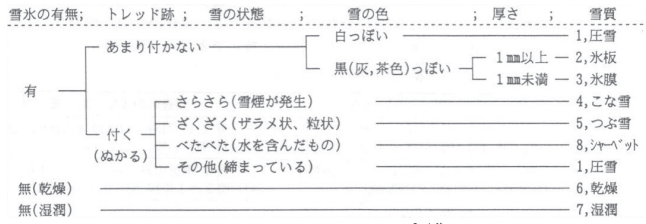 雪氷の有無; トレッド跡 ; 雪の状態 ; 雪の色 ; 厚さ ; 雪質
有 あまり付かない 白っぽい 1,圧雪
黒(灰,茶色)っぽい 1㎜以上 2,氷板
1㎜未満 3,氷膜
付く(ぬかる) さらさら(雪煙が発生) 4,こな雪
ざくざく(ザラメ状、粒状) 5,つぶ雪
べたべた(水を含んだもの) 8,シャーベット
その他(締まっている) 1,圧雪
無(乾燥) 6,乾燥
無(湿潤) 7,湿潤